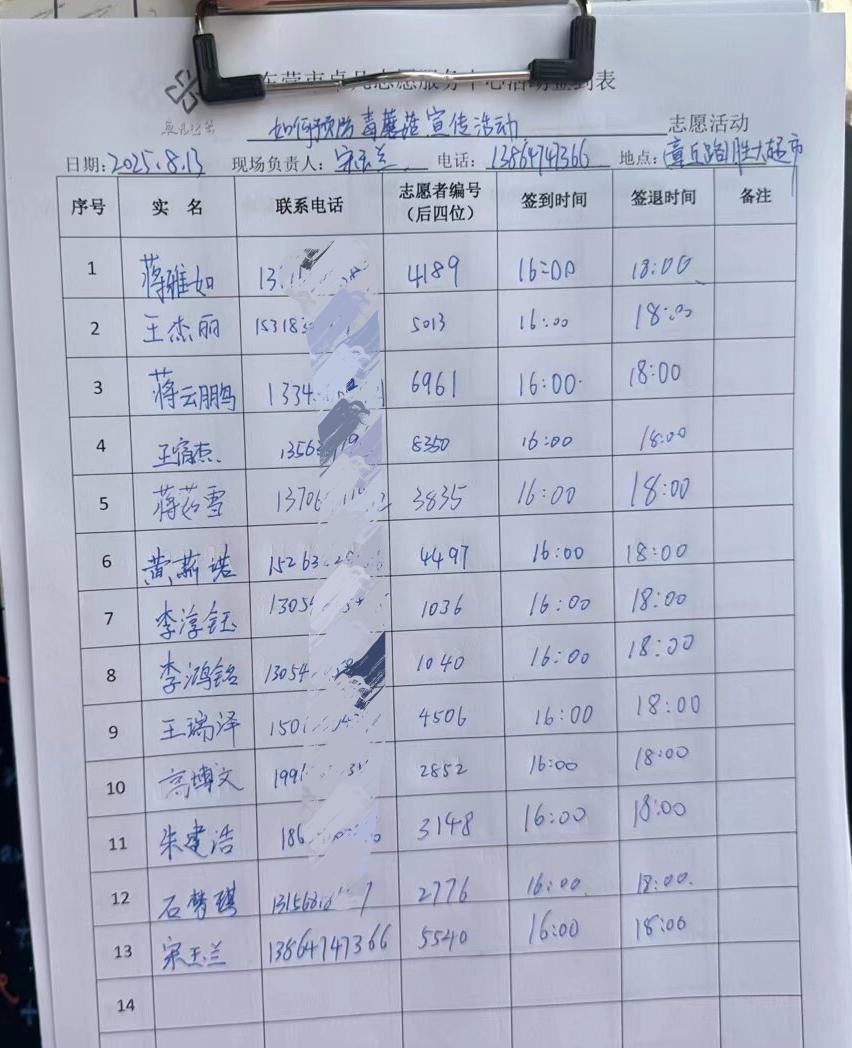 东营市卓凡志愿服务中心活动签到表
如何预防毒蘑菇宣传活动 志愿活动
日期:2025.8.13 现场负责人:宋玉兰 电话:13864747366 地点:
序号 实 名 联系电话 志愿者编号(后四位) 签到时间 签退时间 备注
1 蒋雅如 4189 16:00 18:00
2 王杰丽 5013 16:00 18:00
3 蒋云鹏 1334 6961 16:00 18:00
4 13563 8350 16:00 18:00
5 蒋茹雪 13706 3835 16:00 18:00
6 黄薪诺 15263 4497 16:00 18:00
7 李淳钰 13054 1036 16:00 18:00
8 李鸿铭 13054 1040 16:00 18:00
9 王瑞泽 150 4506 16:00 18:00
10 高博文 199 2852 16:00 18:00
11 朱建浩 186 3148 16:00 18:00
12 石梦琪 131568 2776 16:00 18:00
13 宋玉兰 13864747366 5540 16:00 18:00
14